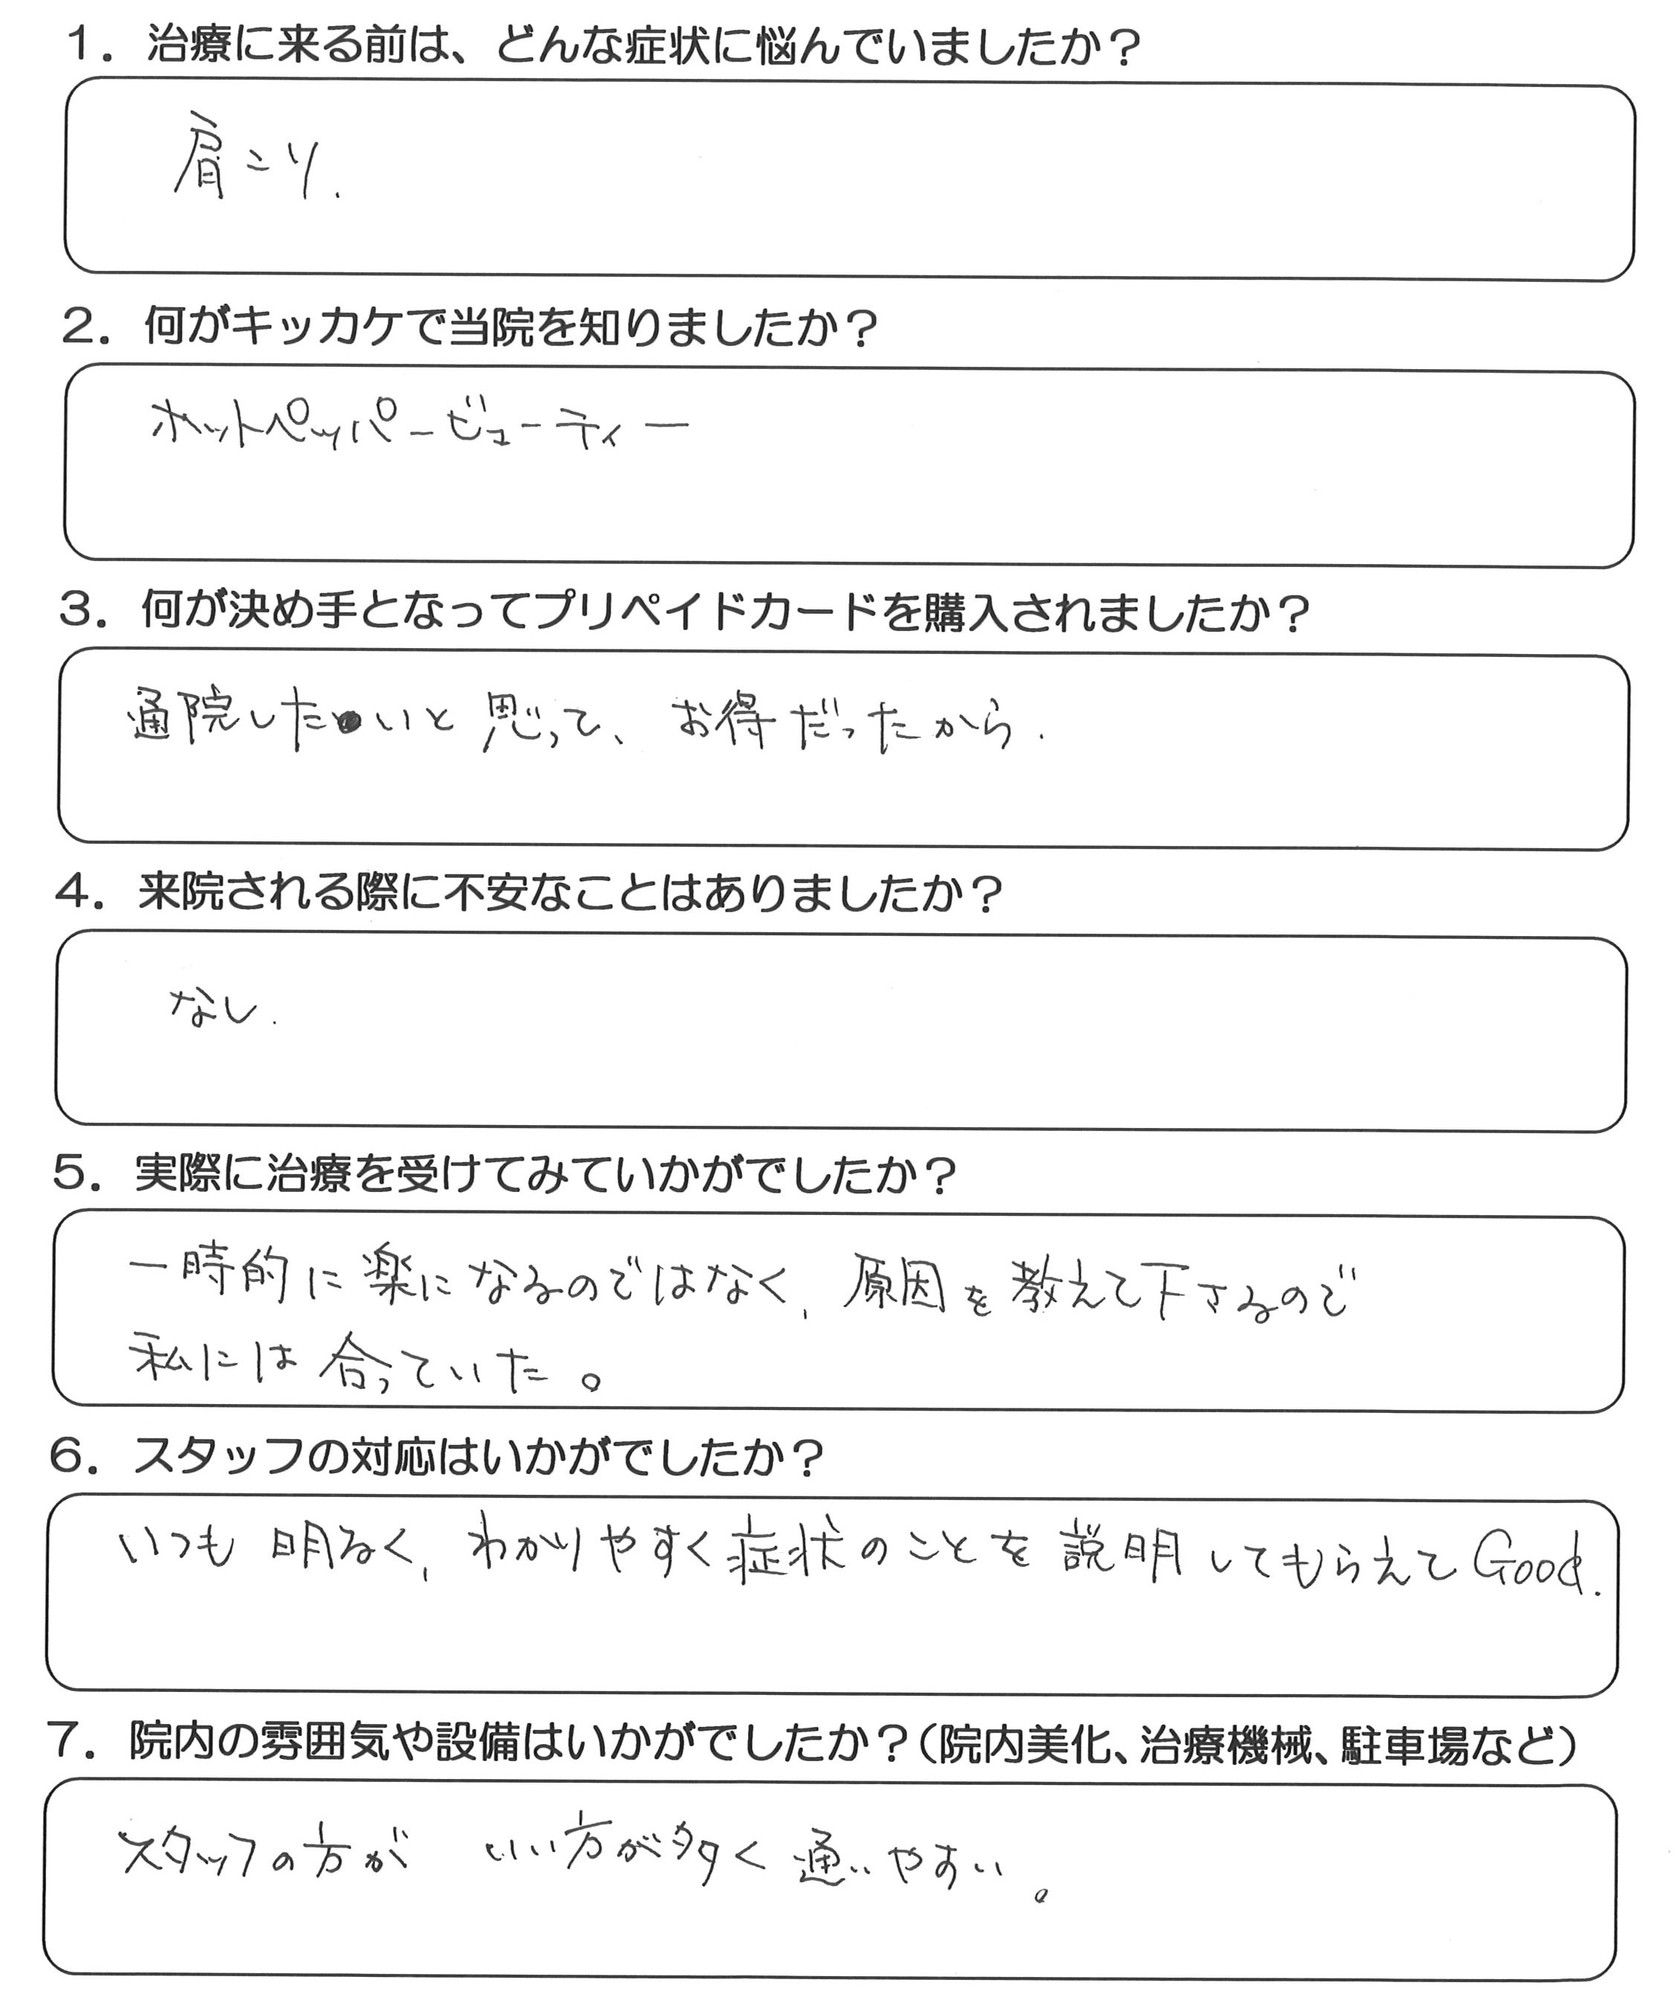 1. 治療に来る前は、どんな症状に悩んでいましたか？
肩こり.
2. 何がキッカケで当院を知りましたか？
ホットペッパービューティー
3. 何が決め手となってプリペイドカードを購入されましたか？
通院したいと思って、お得だったから.
4. 来院される際に不安なことはありましたか？
なし.
5. 実際に治療を受けてみていかがでしたか？
一時的に楽になるのではなく, 原因を教えて下さるので
私には合っていた。
6. スタッフの対応はいかがでしたか？
いつも明るく, わかりやすく症状のことを説明してもらえてGood.
7. 院内の雰囲気や設備はいかがでしたか？（院内美化、治療機械、駐車場など）
スタッフの方が いい方が多く通いやすい。